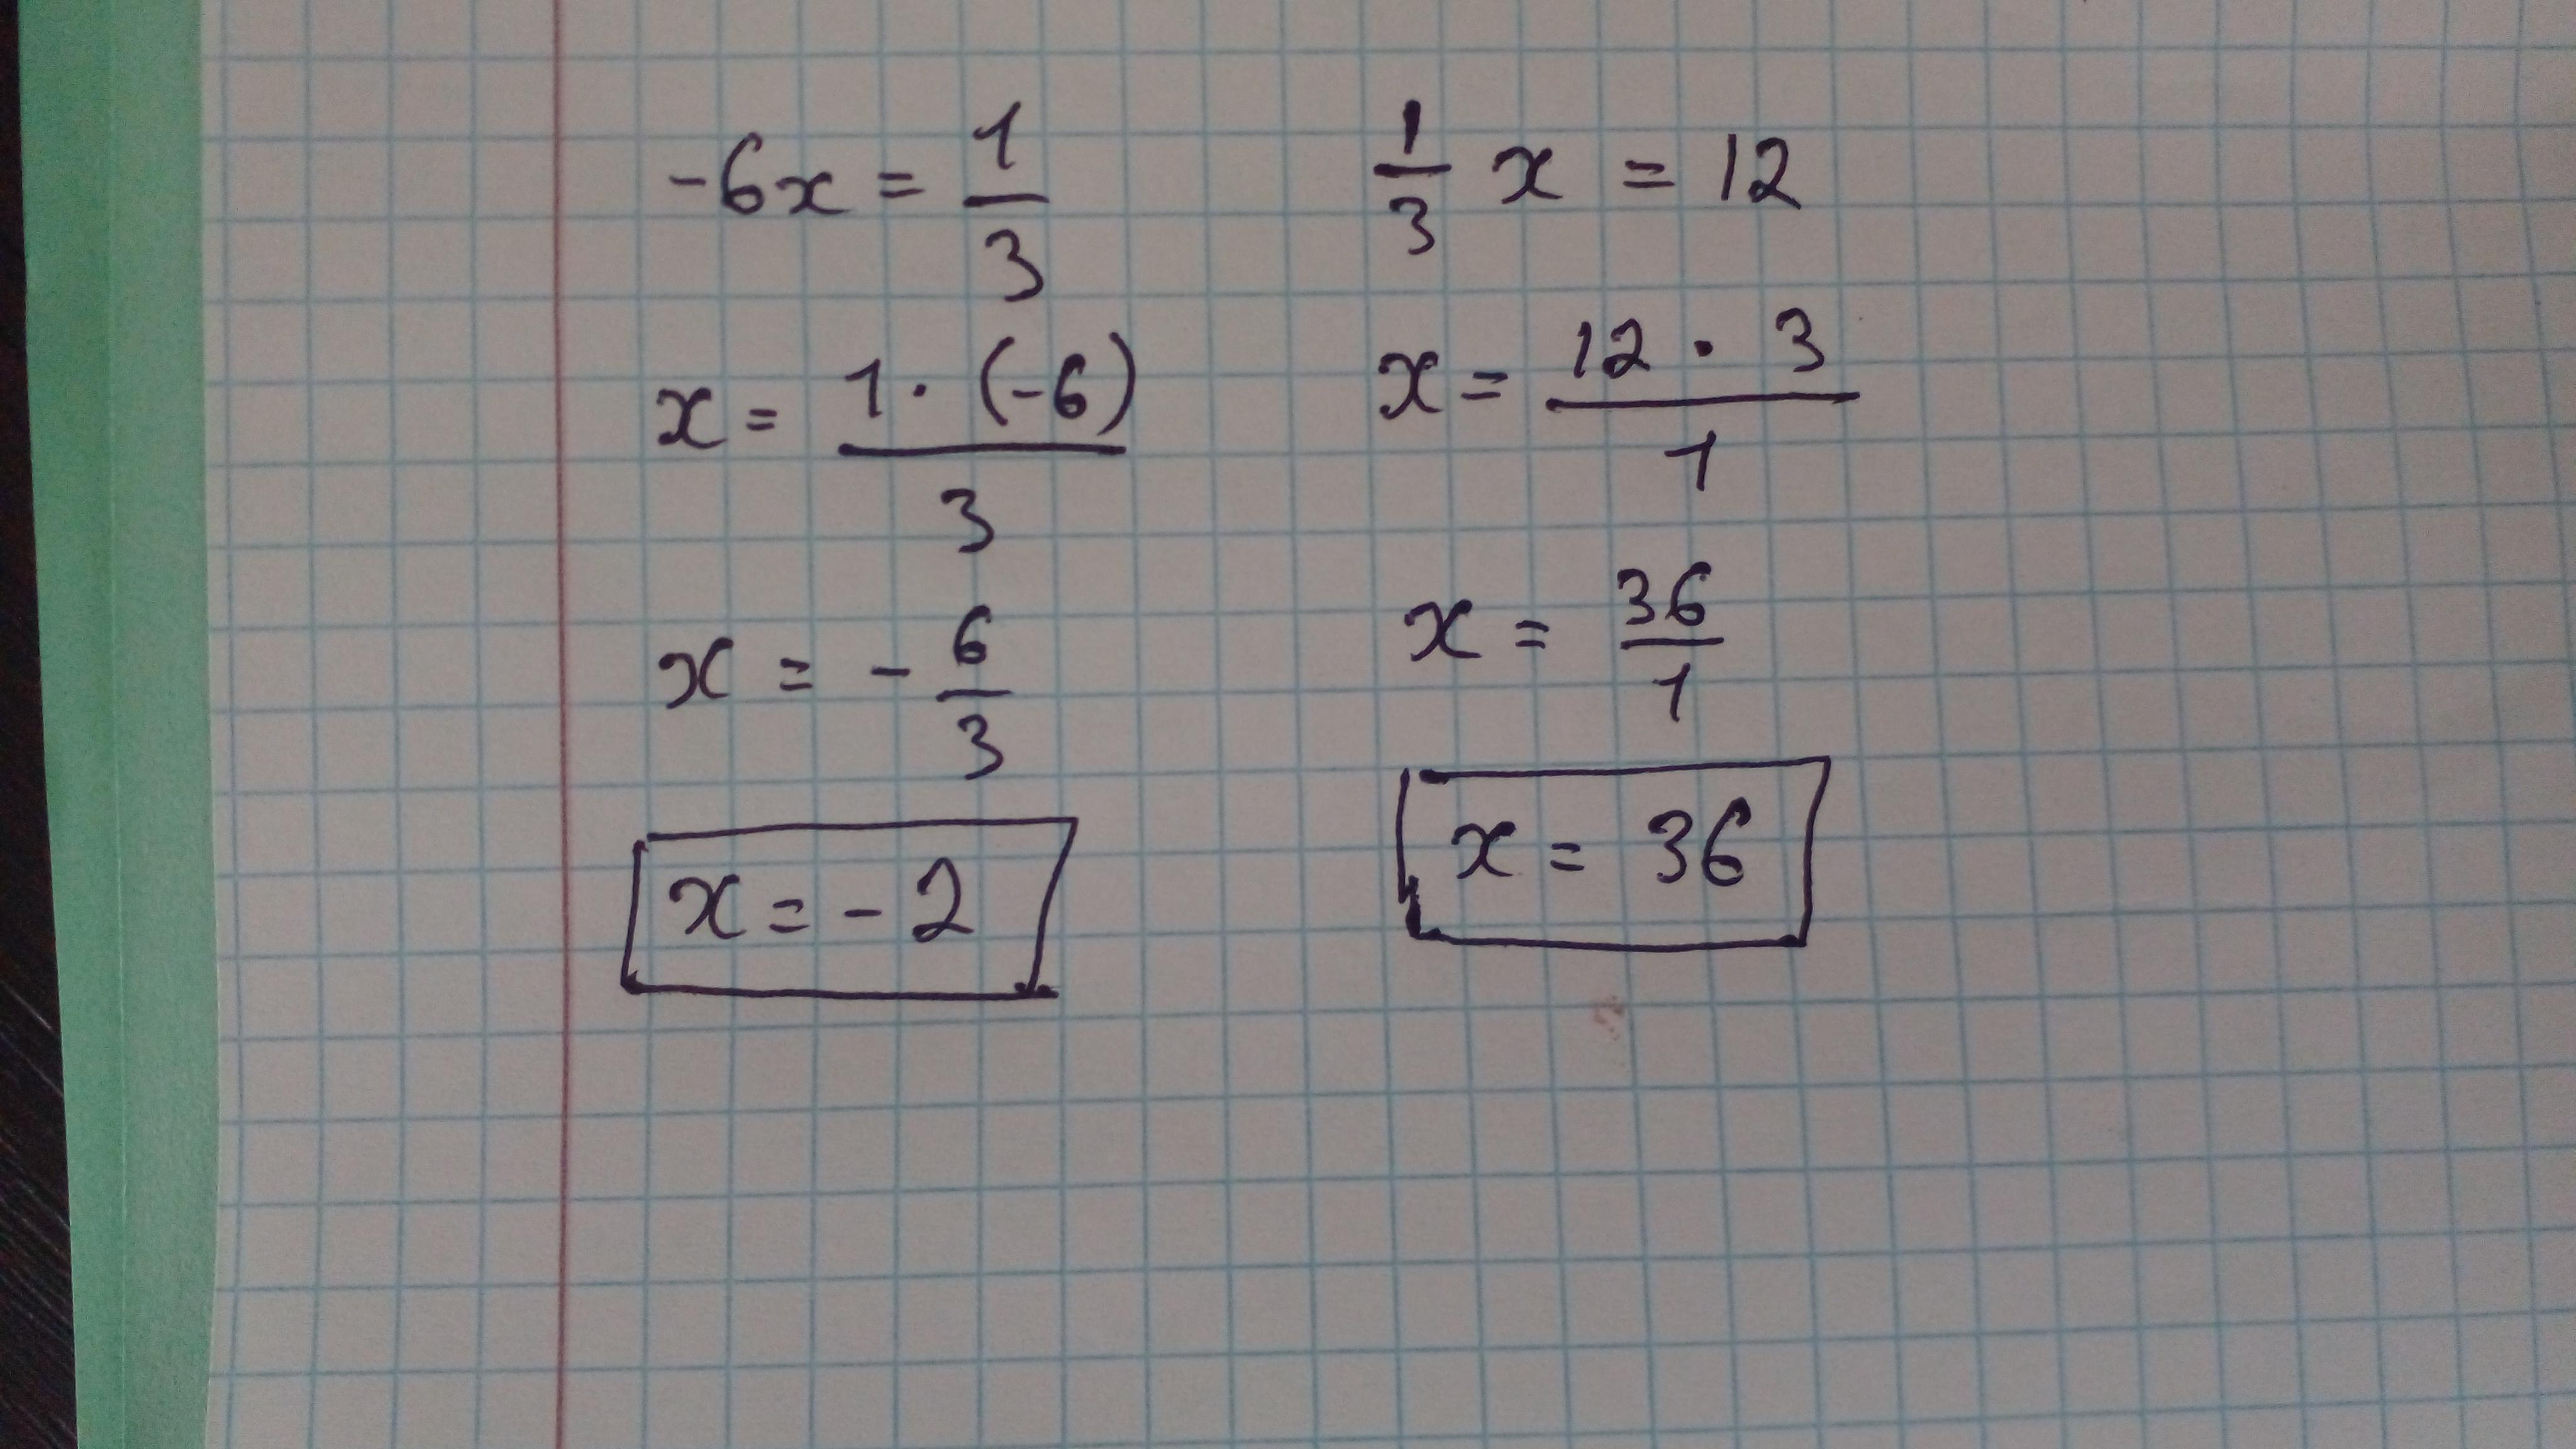 -6x = 1/3
x = 1 · (-6)/3
x = - 6/3
x = - 2
1/3 x = 12
x = 12 · 3/1
x = 36/1
x = 36